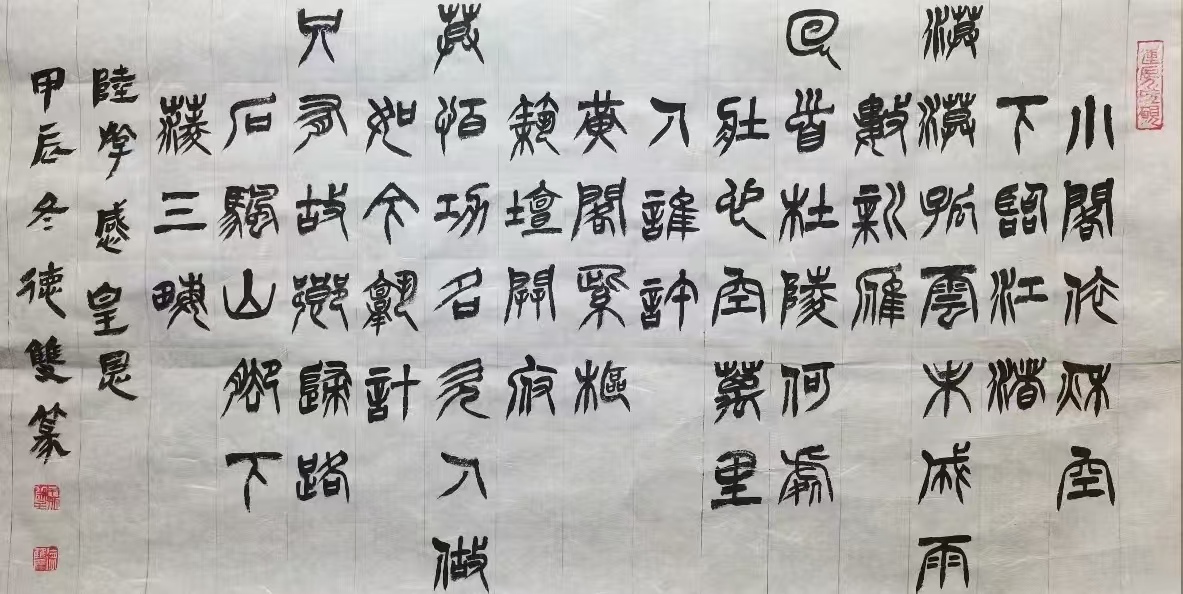 小閣倚秋空
下臨江渚
漠漠孤雲未成雨
數新雁
回首杜陵何處
壯心空萬里
人誰許
黃閣紫樞
築壇開府
莫怕功名欠人做
如今熟計
只有故鄉歸路
石颿山腳下
菱三畮
陸游感皇恩
甲辰冬德雙篆